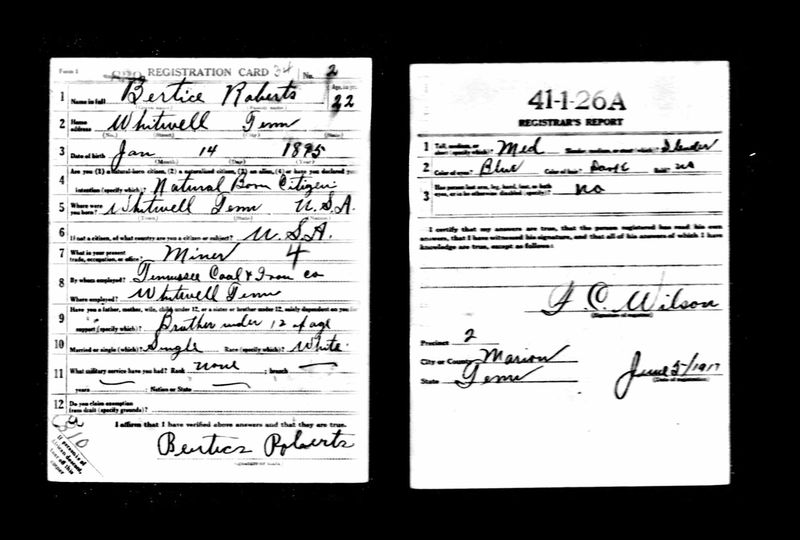 Form 1 REGISTRATION CARD 34 No. 2
1 Name in full Bertice Roberts 22
2 Home address Whitwell Tenn
(No.) (Street) (City) (State)
3 Date of birth Jan 14 1895
(Month) (Day) (Year)
Are you (1) a natural-born citizen, (2) a naturalized citizen, (3) an alien, (4) or have you declared your
4 intention (specify which)? Natural Born Citizen
5 Where were you born? Whitwell Tenn U.S.A.
(Town) (State) (Nation)
6 If not a citizen, of what country are you a citizen or subject? U.S.A.
7 What is your present trade, occupation, or office? Miner 4
8 By whom employed? Tennessee Coal & Iron Co
Where employed? Whitwell Tenn
Have you a father, mother, wife, child under 12, or a sister or brother under 12, solely dependent on you for
9 support (specify which)? Brother under 12 of age
10 Married or single (which)? Single Race (specify which)? White
11 What military service have you had? Rank none ; branch
years ; Nation or State
12 Do you claim exemption from draft (specify grounds)?
I affirm that I have verified above answers and that they are true.
Bertice Roberts
41-1-26A
REGISTRAR'S REPORT
1 Tall, medium, or short (specify which)? Med Slender, medium, or stout (which)? Slender
2 Color of eyes? Blue Color of hair? Dark Bald? no
3 Has person lost arm, leg, hand, foot, or both eyes, or is he otherwise disabled (specify)? no
I certify that my answers are true, that the person registered has read his own
answers, that I have witnessed his signature, and that all of his answers of which I have
knowledge are true, except as follows:
Wilson
(Signature of registrar)
Precinct 2
City or County Marion
State Tenn June 5/1917
(Date of registration)